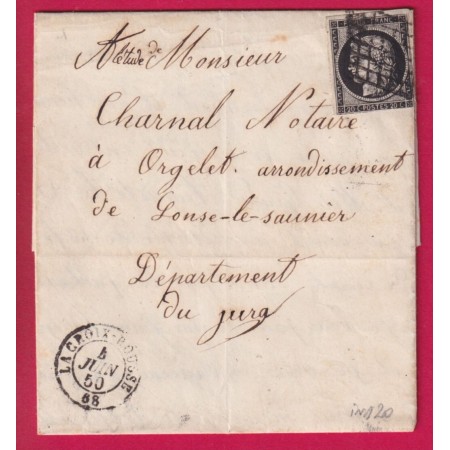 A l'étude de Monsieur
REPUB. FRANC.
20 C. POSTES 20 C.
Charnal Notaire
à Orgelet. arrondissement
de Lonse-le-saunier
Département
du jura
LA CROIX-ROUSSE
4
JUIN
50
68